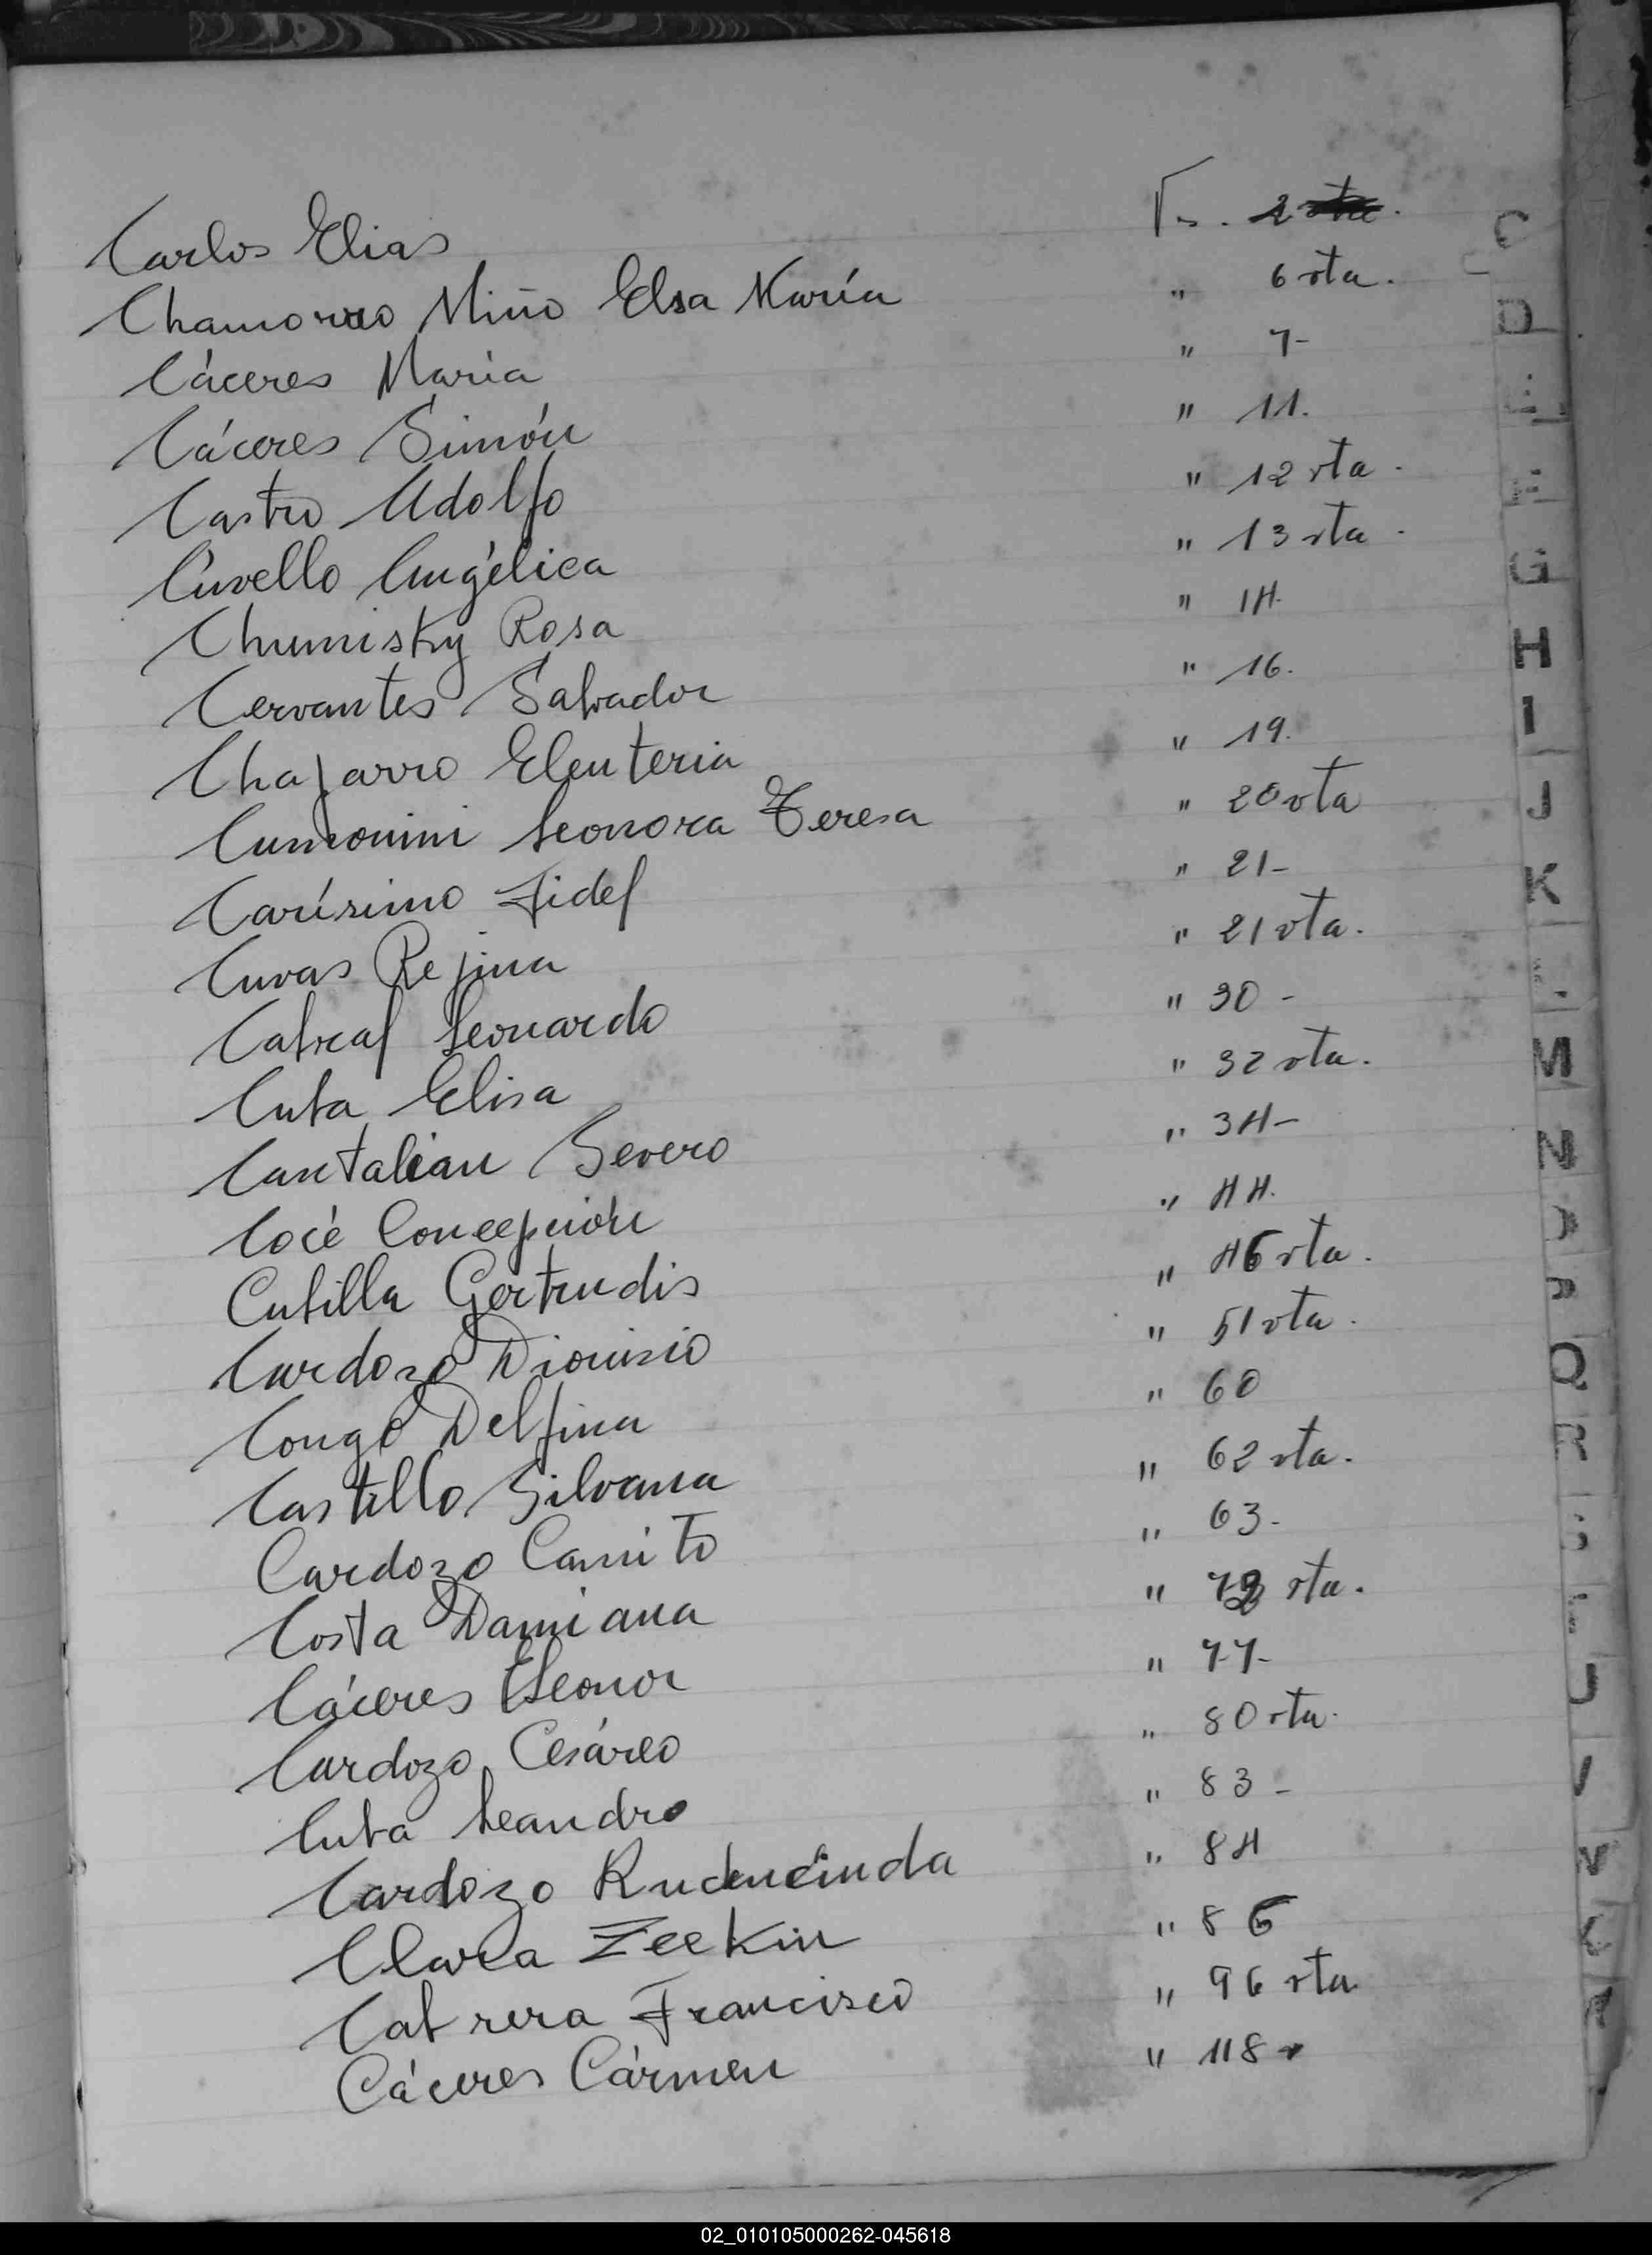 Carlos Elias Fs. 2
Chamorro Miño Elsa María " 6 vta.
Cáceres María " 7-
Cáceres Simón " 11.
Castro Adolfo " 12 vta.
Cuvello Angélica " 13 vta.
Chumisky Rosa " 14.
Cervantes Salvador " 16.
Chaparro Eleuteria " 19.
Leonora Teresa " 20 vta
Carísimo Fidel " 21-
Cuvas Rejina " 21 vta.
Cabral Leonardo " 30-
Cuba Elisa " 32 vta.
Cantalian Severo " 34-
Cocé Concepción " 44.
Cubilla Gertrudis " 46 vta.
Cardozo Dionisio " 51 vta.
Congo Delfina " 60
Castillo Silvana " 62 vta.
Cardozo Canuto " 63-
Costa Damiana " vta.
Cáceres Leonor " 77-
Cardozo Cesáreo " 80 vta.
Cuba Leandro " 83-
Cardozo Rudencinda " 84
Clara Zeekin " 86
Cabrera Francisco " 96 vta
Cáceres Cármen " 118
C
D
G
H
I
J
K
M
N
Q
R
02_010105000262-045618